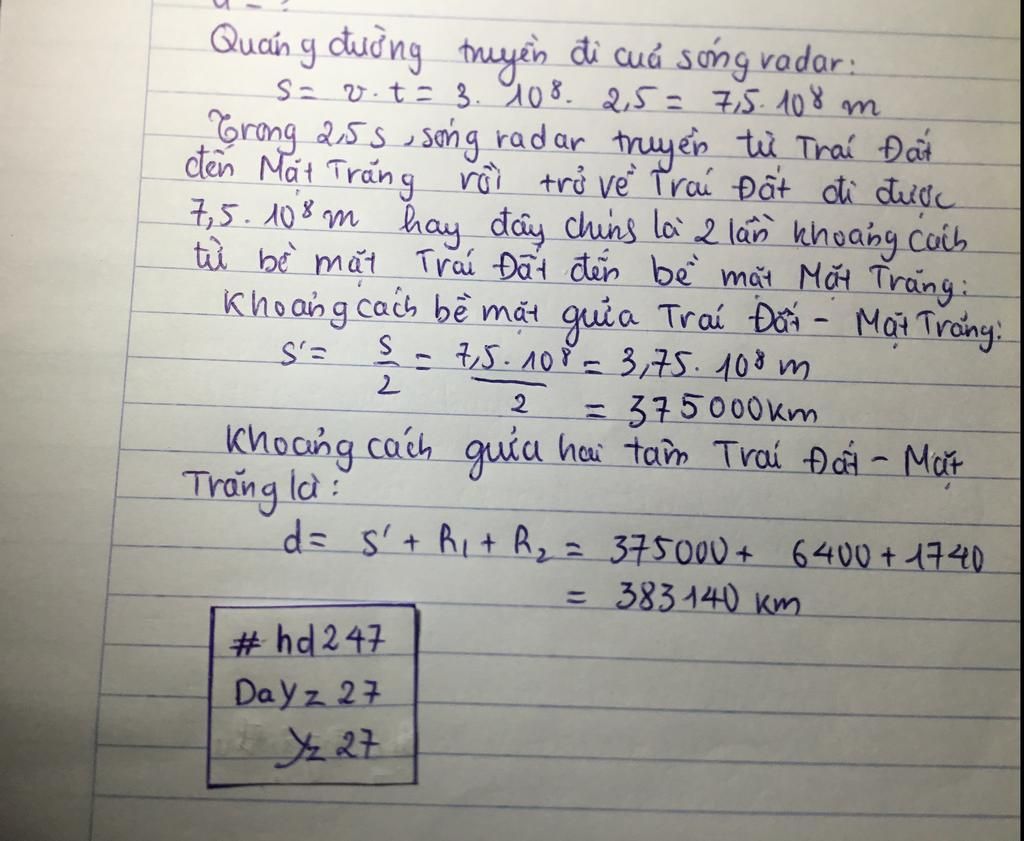 Quãng đường truyền đi của sóng radar:
S = v.t = 3. 10⁸. 2,5 = 7,5. 10⁸ m
Trong 2,5 s, sóng radar truyền từ Trái Đất
đến Mặt Trăng rồi trở về Trái Đất đi được
7,5. 10⁸ m hay đây chính là 2 lần khoảng cách
từ bề mặt Trái Đất đến bề mặt Mặt Trăng:
Khoảng cách bề mặt giữa Trái Đất - Mặt Trăng:
S' = S/2 = 7,5. 10⁸/2 = 3,75. 10⁸ m
= 375000km
Khoảng cách giữa hai tâm Trái Đất - Mặt
Trăng là:
d = S' + R₁ + R₂ = 375000 + 6400 + 1740
= 383140 km
# hd247
Dayz 27
Yz 27